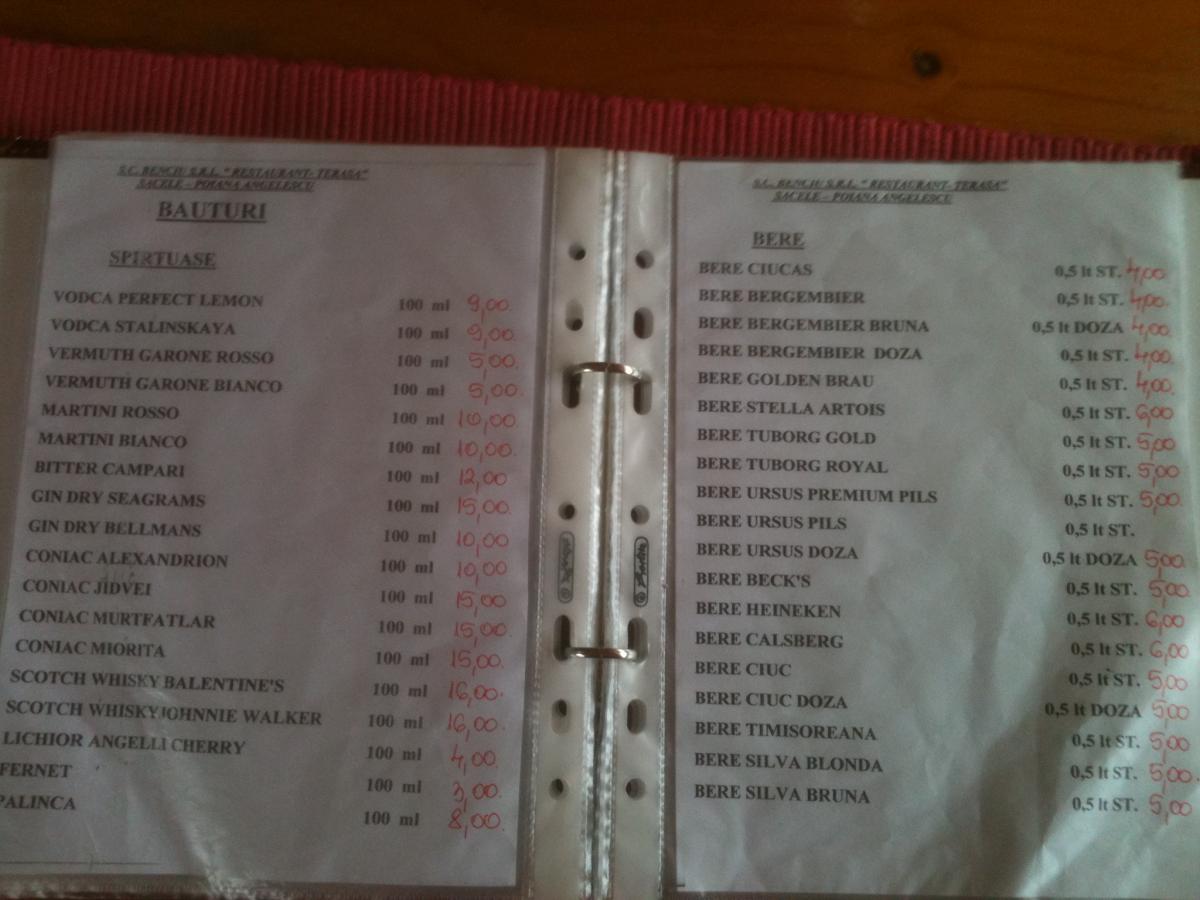 S.C. BENCIU S.R.L. " RESTAURANT- TERASA"
SACELE – POIANA ANGELESCU
BAUTURI
SPIRTUASE
VODCA PERFECT LEMON 100 ml 9,00
VODCA STALINSKAYA 100 ml 9,00
VERMUTH GARONE ROSSO 100 ml 5,00
VERMUTH GARONE BIANCO 100 ml 5,00
MARTINI ROSSO 100 ml 10,00
MARTINI BIANCO 100 ml 10,00
BITTER CAMPARI 100 ml 12,00
GIN DRY SEAGRAMS 100 ml 15,00
GIN DRY BELLMANS 100 ml 10,00
CONIAC ALEXANDRION 100 ml 10,00
CONIAC JIDVEI 100 ml 15,00
CONIAC MURTFATLAR 100 ml 15,00
CONIAC MIORITA 100 ml 15,00
SCOTCH WHISKY BALENTINE'S 100 ml 16,00
SCOTCH WHISKYJOHNNIE WALKER 100 ml 16,00
LICHIOR ANGELLI CHERRY 100 ml 4,00
FERNET 100 ml 3,00
PALINCA 100 ml 8,00
S.C. BENCIU S.R.L. " RESTAURANT- TERASA"
SACELE – POIANA ANGELESCU
BERE
BERE CIUCAS 0,5 lt ST. 4,00
BERE BERGEMBIER 0,5 lt ST. 4,00
BERE BERGEMBIER BRUNA 0,5 lt DOZA 4,00
BERE BERGEMBIER DOZA 0,5 lt ST. 4,00
BERE GOLDEN BRAU 0,5 lt ST. 4,00
BERE STELLA ARTOIS 0,5 lt ST. 6,00
BERE TUBORG GOLD 0,5 lt ST. 5,00
BERE TUBORG ROYAL 0,5 lt ST. 5,00
BERE URSUS PREMIUM PILS 0,5 lt ST. 5,00
BERE URSUS PILS 0,5 lt ST.
BERE URSUS DOZA 0,5 lt DOZA 5,00
BERE BECK'S 0,5 lt ST. 5,00
BERE HEINEKEN 0,5 lt ST. 6,00
BERE CALSBERG 0,5 lt ST. 6,00
BERE CIUC 0,5 lt ST. 5,00
BERE CIUC DOZA 0,5 lt DOZA 5,00
BERE TIMISOREANA 0,5 lt ST. 5,00
BERE SILVA BLONDA 0,5 lt ST. 5,00
BERE SILVA BRUNA 0,5 lt ST. 5,00